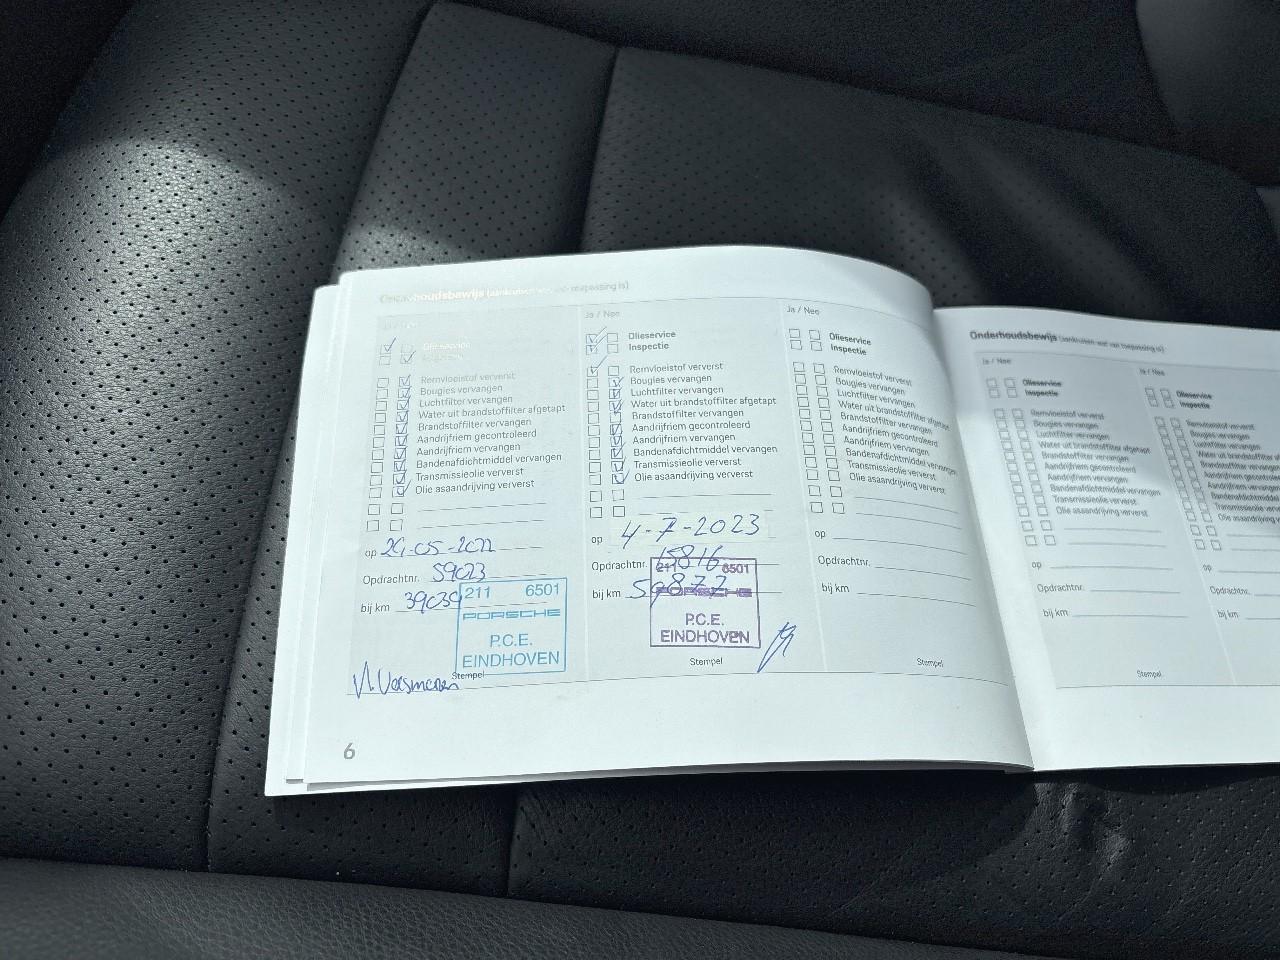 Onderhoudsbewijs (aankruisen wat van toepassing is)
Ja / Nee
Olieservice
Inspectie
Remvloeistof ververst
Bougies vervangen
Luchtfilter vervangen
Water uit brandstoffilter afgetapt
Brandstoffilter vervangen
Aandrijfriem gecontroleerd
Aandrijfriem vervangen
Bandenafdichtmiddel vervangen
Transmissieolie ververst
Olie asaandrijving ververst
op
Opdrachtnr. 59023
bij km 39039
211 6501
PORSCHE
P.C.E.
EINDHOVEN
Stempel
Ja / Nee
Olieservice
Inspectie
Remvloeistof ververst
Bougies vervangen
Luchtfilter vervangen
Water uit brandstoffilter afgetapt
Brandstoffilter vervangen
Aandrijfriem gecontroleerd
Aandrijfriem vervangen
Bandenafdichtmiddel vervangen
Transmissieolie ververst
Olie asaandrijving ververst
op 4-7-2023
Opdrachtnr. 15816
bij km 59877
211 6501
PORSCHE
P.C.E.
EINDHOVEN
Stempel
Ja / Nee
Olieservice
Inspectie
Remvloeistof ververst
Bougies vervangen
Luchtfilter vervangen
Water uit brandstoffilter afgetapt
Brandstoffilter vervangen
Aandrijfriem gecontroleerd
Aandrijfriem vervangen
Bandenafdichtmiddel vervangen
Transmissieolie ververst
Olie asaandrijving ververst
op
Opdrachtnr.
bij km
Stempel
6
Onderhoudsbewijs (aankruisen wat van toepassing is)
Ja / Nee
Olieservice
Inspectie
Remvloeistof ververst
Bougies vervangen
Luchtfilter vervangen
Water uit brandstoffilter afgetapt
Brandstoffilter vervangen
Aandrijfriem gecontroleerd
Aandrijfriem vervangen
Bandenafdichtmiddel vervangen
Transmissieolie ververst
Olie asaandrijving ververst
op
Opdrachtnr.
bij km
Stempel
Ja / Nee
Olieservice
Inspectie
Remvloeistof ververst
Bougies vervangen
Luchtfilter vervangen
Water uit brandstoffilter
Brandstoffilter vervangen
Aandrijfriem
Aandrijfriem
Transmissieolie
Olie asaandrijving
op
Opdrachtnr.
bij km